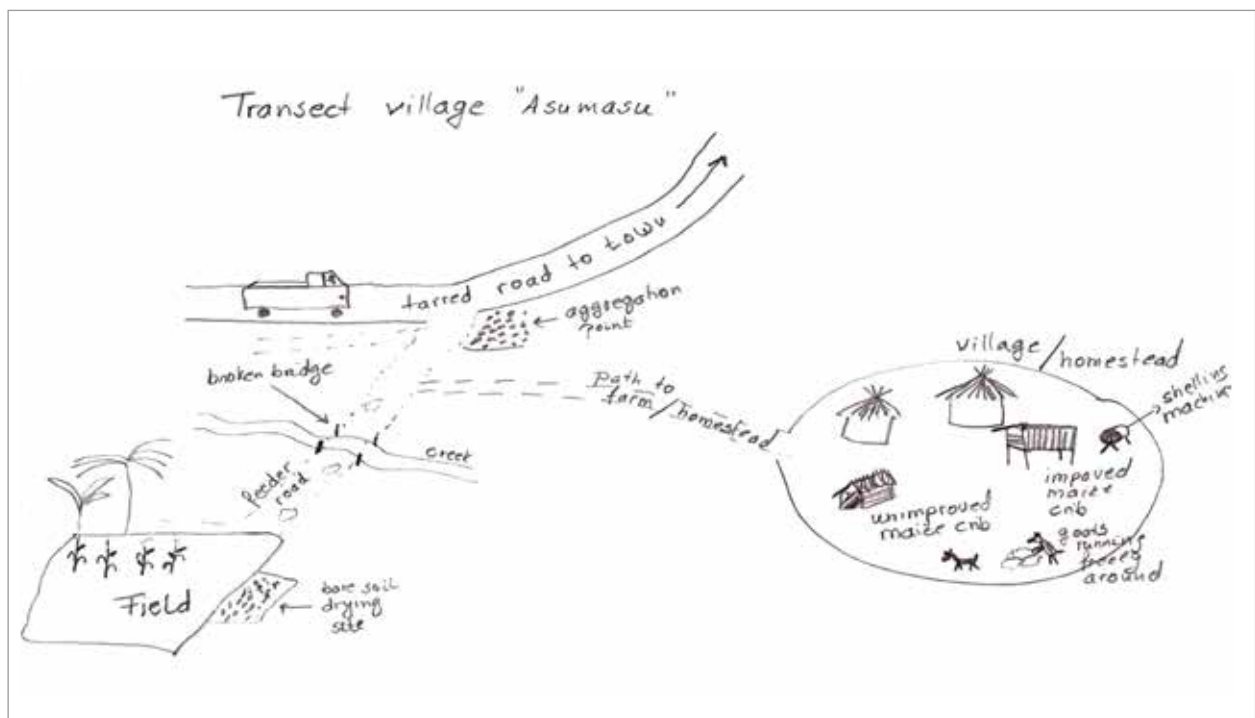 Transect village "Asumasu"
tarred road to town
aggregation
point
broken bridge
path to
farm/homestead
creek
feeder
road
Field
bare soil
drying
site
village/homestead
shelling
machine
impoved
maize
crib
unimproved
maize crib
goats
running
freely
around